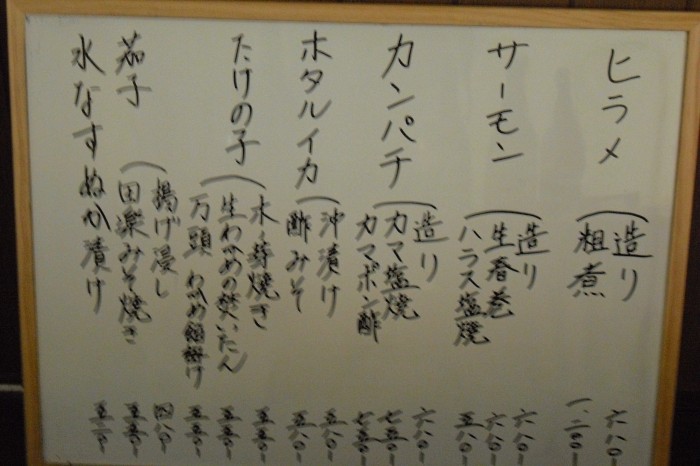 ヒラメ
造り 六八〇-
粗煮 一、二〇〇-
サーモン
造り 六八〇-
生春巻 六八〇-
ハラス塩焼 五八〇-
カンパチ
造り 六八〇-
カマ塩焼 七五〇-
カマポン酢 七五〇-
ホタルイカ
沖漬け 五八〇-
酢みそ 五八〇-
たけの子
木ノ芽焼き 五五〇-
生わかめの焚いたん 五五〇-
万頭 わかめ餡掛け 五五〇-
茄子
揚げ浸し 四八〇-
田楽みそ焼き 五五〇-
水なすぬか漬け